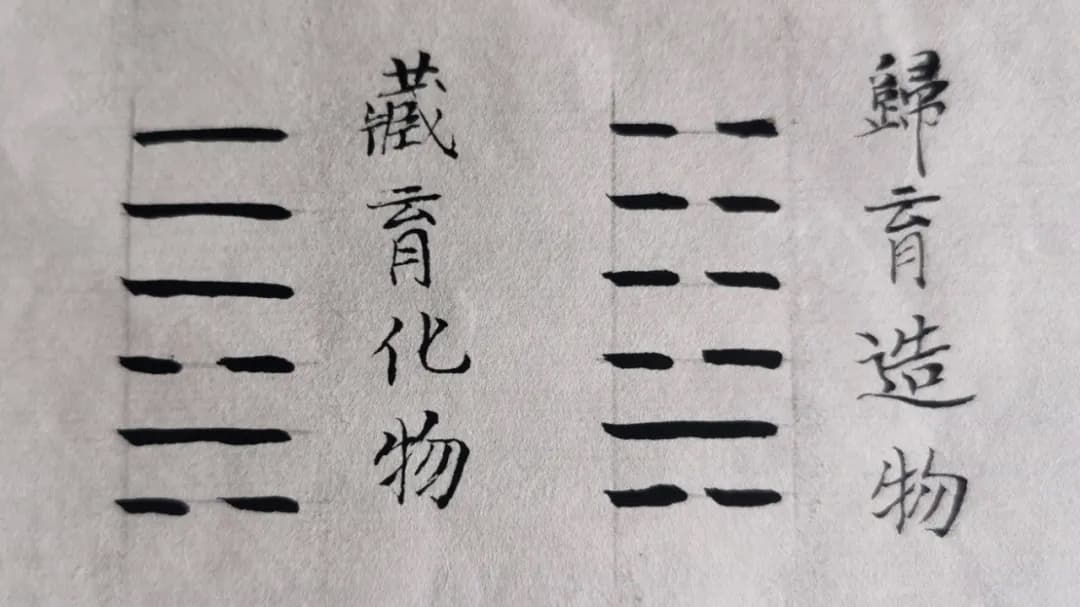 歸育造物
藏育化物